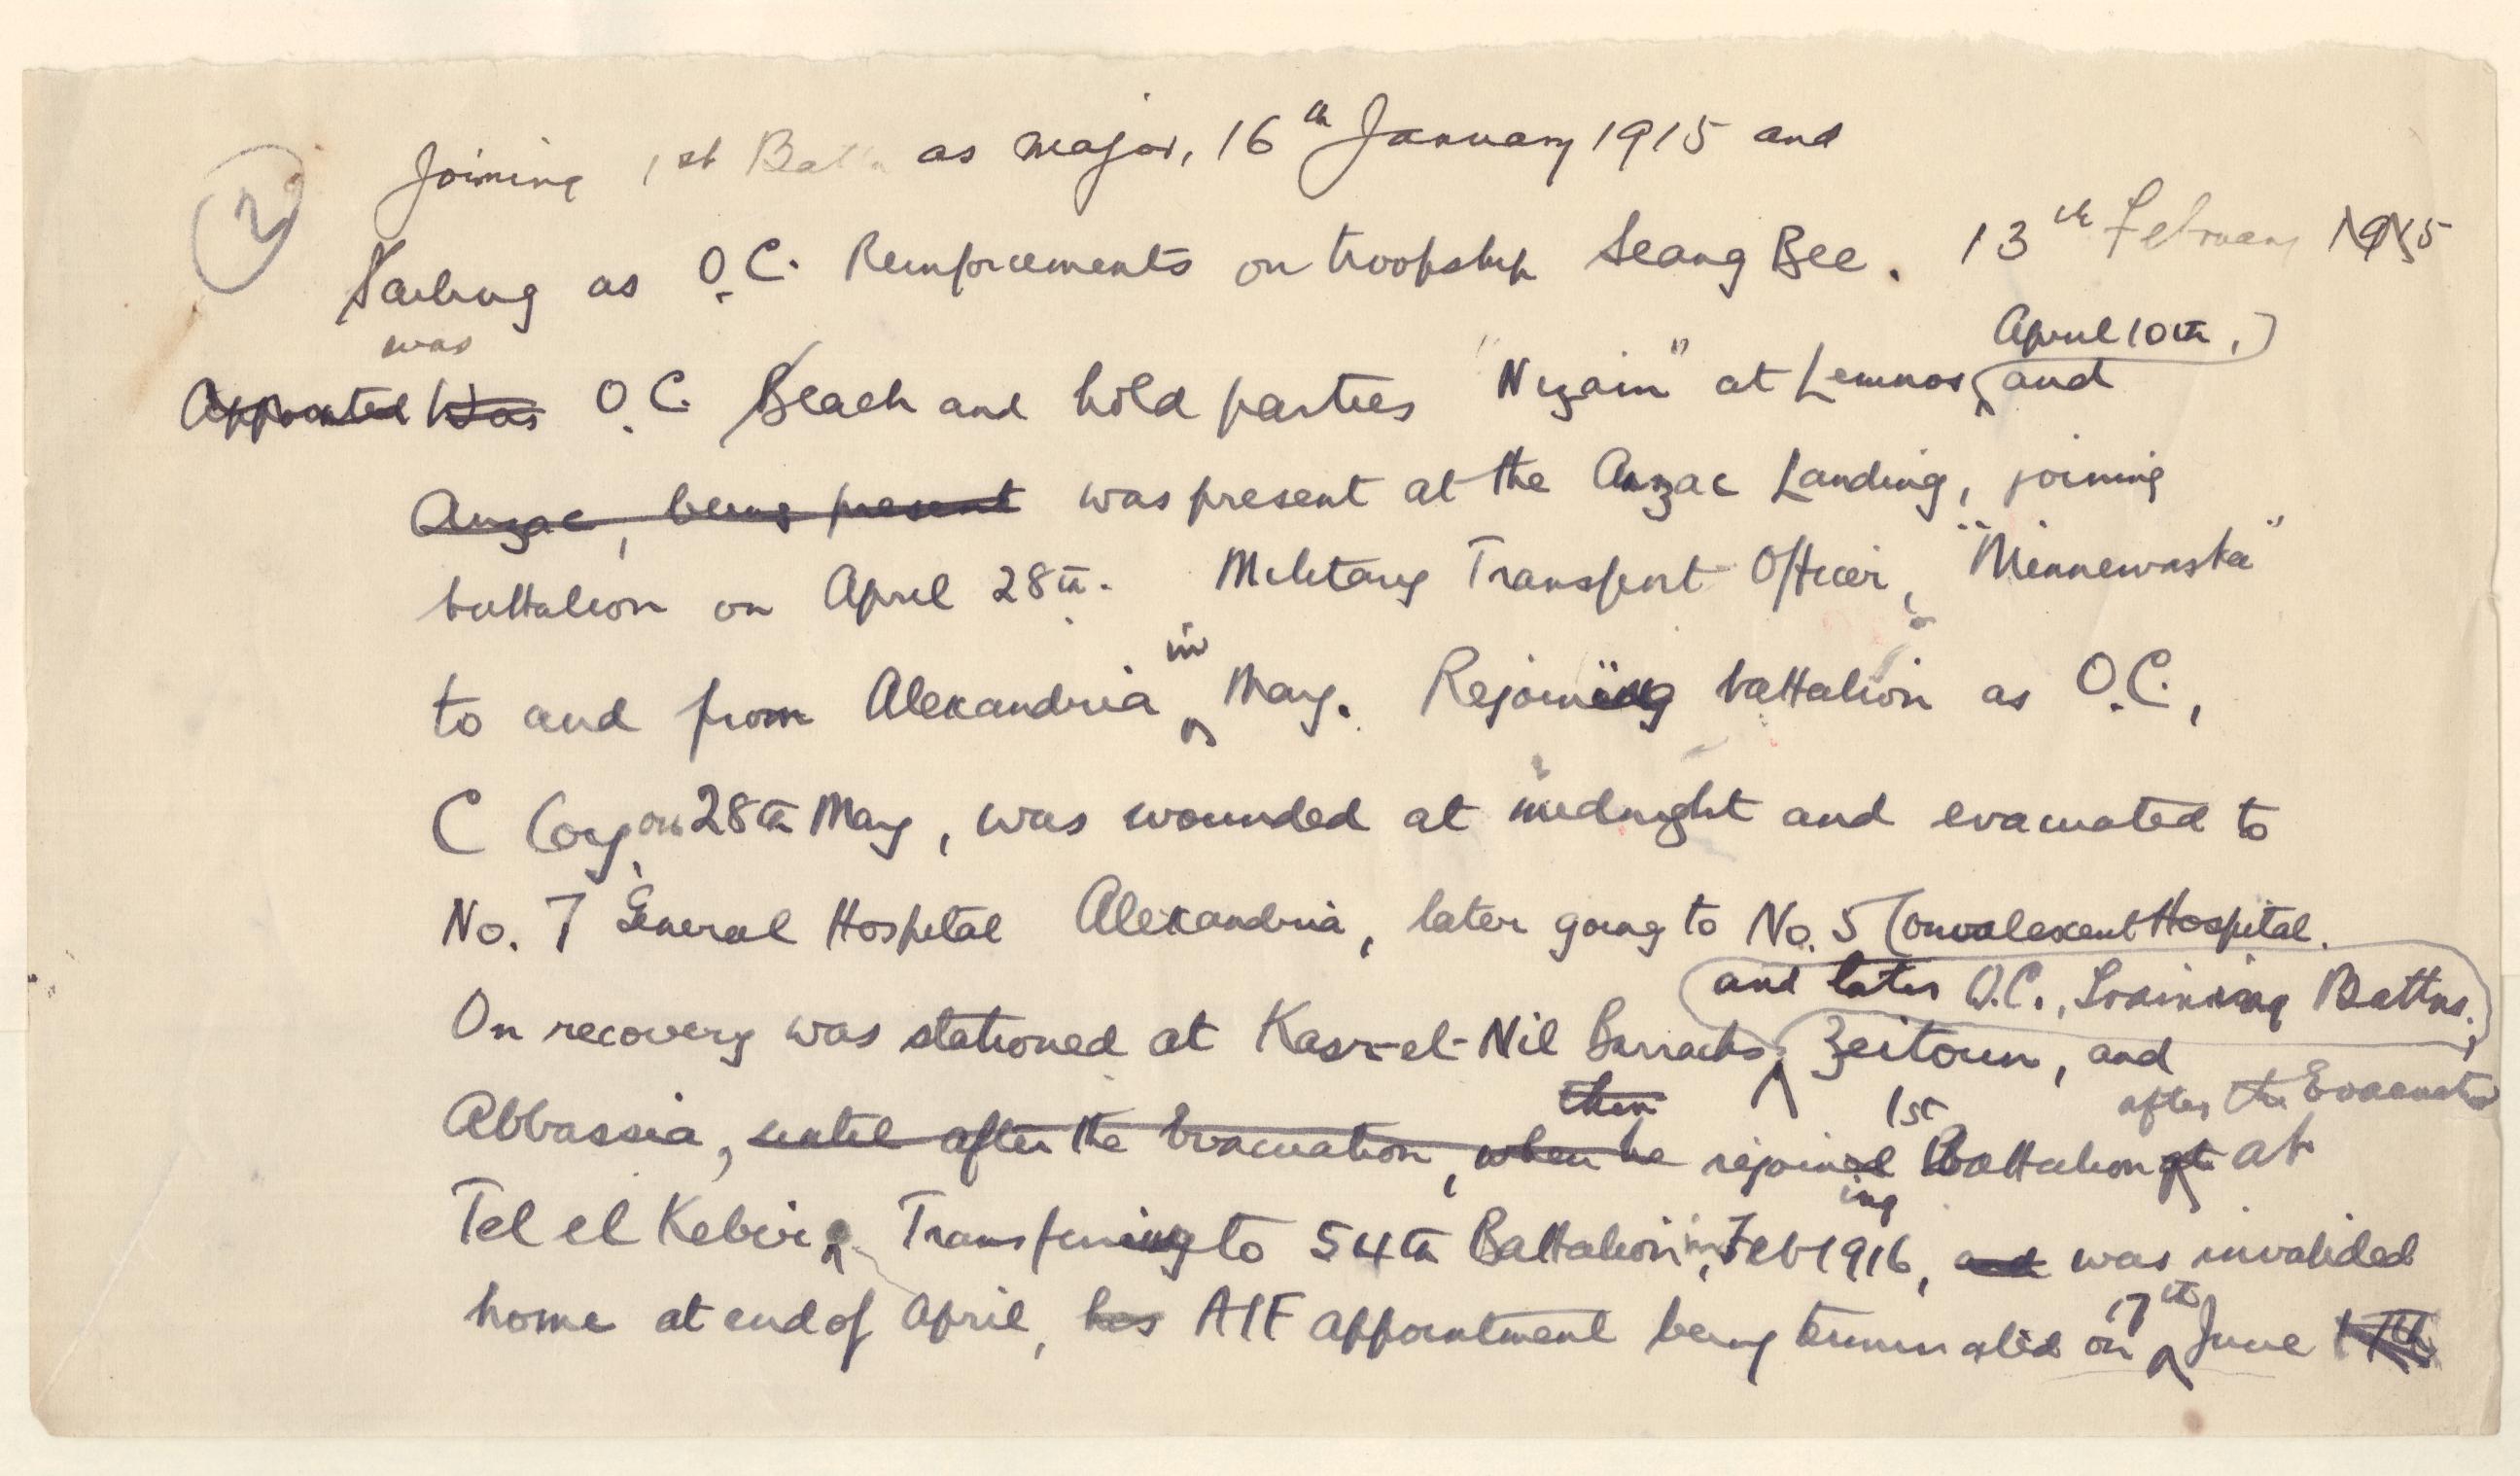 2
Joining 1st Battn as major, 16th January 1915 and
Sailing as O.C. Reinforcements on troopship Seang Bee. 13th February 1915
was
April 10th,
Appointed Was O.C. Beach and hold parties "Nizam" at Lemnos, and
Anzac, being present was present at the Anzac Landing, joining
battalion on April 28th. Military Transport Officer, "Minnewaska"
in
to and from Alexandria May. Rejoining battalion as O.C.,
C Coy on 28th May, was wounded at midnight and evacuated to
No. 7 General Hospital Alexandria, later going to No. 5 Convalescent Hospital.
and later O.C., Training Battns.,
On recovery was stationed at Kasr-el-Nil Barracks, Zeitoun, and
then 1st after the Evacuation
Abbassia, until after the Evacuation, when he rejoined Battalion at at
ing
Tel el Kebir. Transferring to 54th Battalion in Feb 1916, and was invalided
17th
home at end of April, his AIF appointment being terminated on June 17th